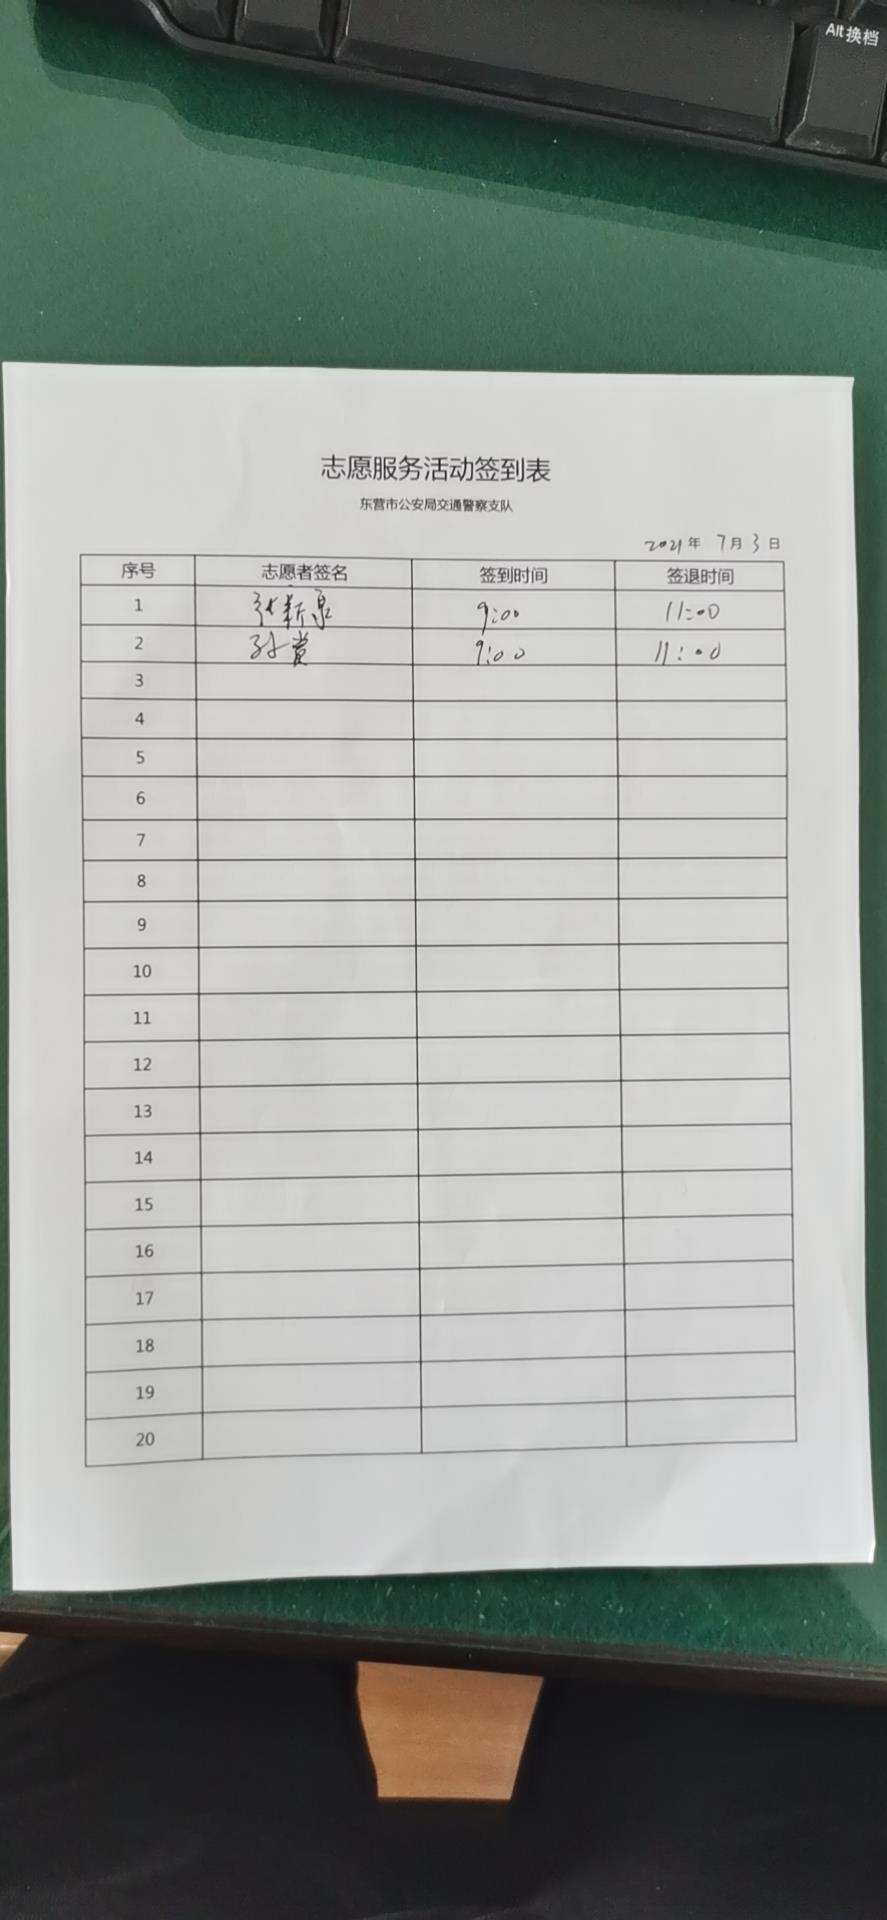 Alt换档
志愿服务活动签到表
东营市公安局交通警察支队
2021年 7月3日
序号 志愿者签名 签到时间 签退时间
1 张新泉 9:00 11:00
2 孙 9:00 11:00
3
4
5
6
7
8
9
10
11
12
13
14
15
16
17
18
19
20